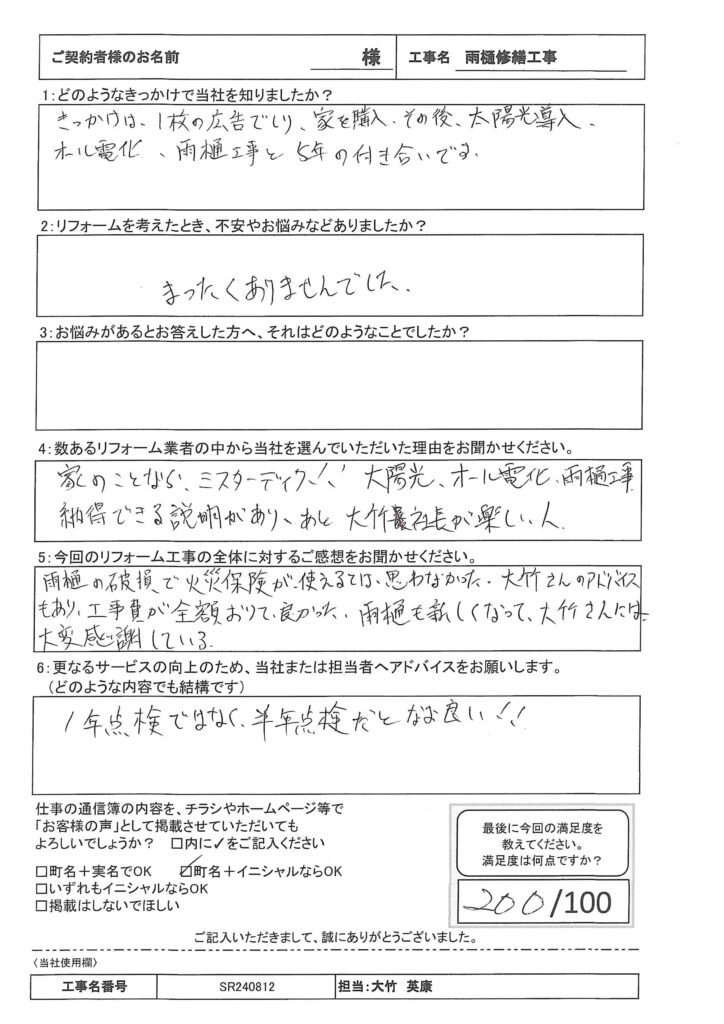 ご契約者様のお名前 様 工事名 雨樋修繕工事
1:どのようなきっかけで当社を知りましたか？
きっかけは、1枚の広告でしり、家を購入、その後、太陽光導入、
オール電化、雨樋工事と5年の付き合いです。
2:リフォームを考えたとき、不安やお悩みなどありましたか？
まったくありませんでした。
3:お悩みがあるとお答えした方へ、それはどのようなことでしたか？
4:数あるリフォーム業者の中から当社を選んでいただいた理由をお聞かせください。
家のことなら、ミスターデイク!! 太陽光、オール電化、雨樋工事
納得できる説明があり、あと大竹社長が楽しい人
5:今回のリフォーム工事の全体に対するご感想をお聞かせください。
雨樋の破損で火災保険が使えるとは、思わなかった。大竹さんのアドバイス
もあり、工事費が全額おりて、良かった。雨樋も新しくなって、大竹さんには、
大変感謝している。
6:更なるサービスの向上のため、当社または担当者へアドバイスをお願いします。
（どのような内容でも結構です）
1年点検ではなく、半年点検だとなお良い!!
仕事の通信簿の内容を、チラシやホームページ等で
「お客様の声」として掲載させていただいても
よろしいでしょうか？ □内に✓をご記入ください
□町名＋実名でOK ☑町名＋イニシャルならOK
□いずれもイニシャルならOK
□掲載はしないでほしい
最後に今回の満足度を
教えてください。
満足度は何点ですか？
200/100
ご記入いただきまして、誠にありがとうございました。
〈当社使用欄〉
工事名番号 SR240812 担当:大竹 英康